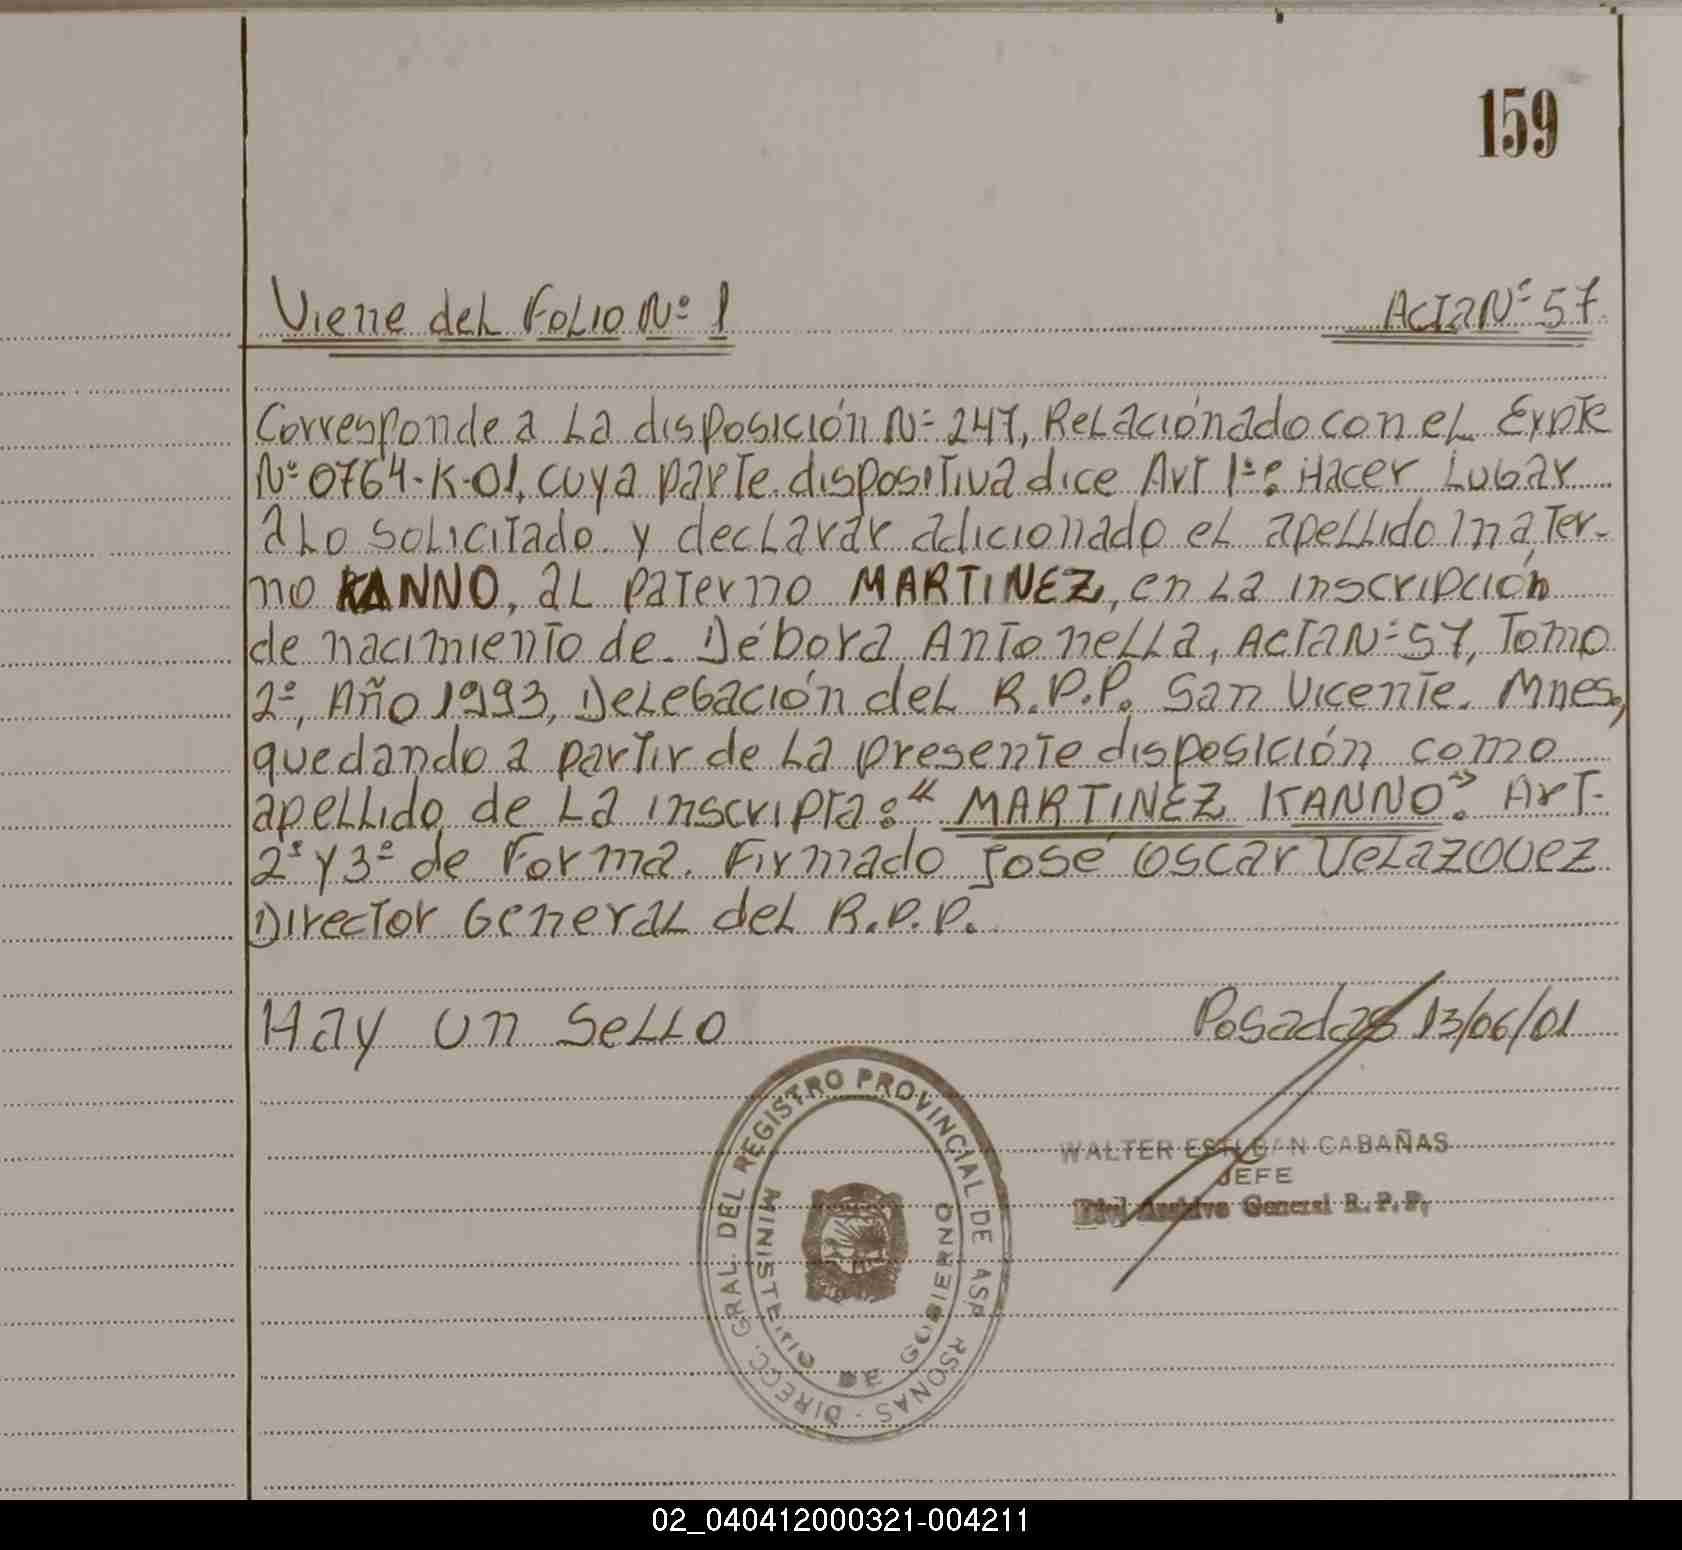 159
Viene del Folio Nº 1 Acta Nº 57
Corresponde a la disposición Nº 247, Relaciónado con el Expte
Nº 0764-K-01, cuya parte dispositiva dice Art 1º: Hacer Lugar
a lo solicitado y declarar adicionado el apellido mater-
no KANNO, al paterno MARTINEZ, en la inscripción
de nacimiento de Débora Antonella, Acta Nº 57, Tomo
2º, Año 1993, Delegación del R.P.P. San Vicente. Mnes,
quedando a partir de la presente disposición como
apellido de la inscripta: "MARTINEZ KANNO". Art.
2º y 3º de Forma. Firmado José Oscar Velazquez
Director General del R.P.P.
Hay un sello Posadas 13/06/01
DIRECC. GRAL. DEL REGISTRO PROVINCIAL DE ASP RSONAS -
MINISTERIO DE GOBIERNO
WALTER ESTEBAN CABAÑAS
JEFE
Div. Archivo General R. P. P.
02_040412000321-004211